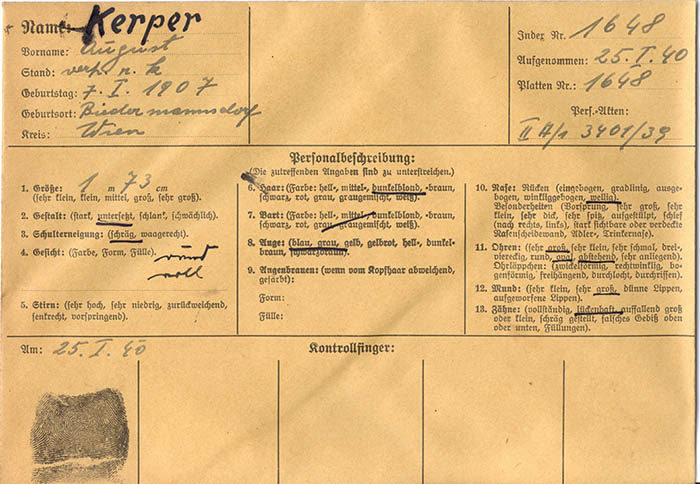 Name: Kerper
Vorname: August
Stand: verh. n. k
Geburtstag: 7. I. 1907
Geburtsort: Biedermannsdorf
Kreis: Wien
Index Nr. 1648
Aufgenommen: 25. I. 40
Platten Nr.: 1648
Pers.-Akten:
II A/1 3401/39
Personalbeschreibung:
(Die zutreffenden Angaben sind zu unterstreichen.)
1. Größe: 1 m 73 cm
(sehr klein, klein, mittel, groß, sehr groß).
2. Gestalt: (stark, untersetzt, schlank, schwächlich).
3. Schulterneigung: (schräg, waagerecht).
4. Gesicht: (Farbe, Form, Fülle). rund
voll
5. Stirn: (sehr hoch, sehr niedrig, zurückweichend,
senkrecht, vorspringend).
6. Haar: (Farbe: hell-, mittel-, dunkelblond, -braun,
schwarz, rot, grau, graugemischt, weiß).
7. Bart: (Farbe: hell-, mittel-, dunkelblond, -braun,
schwarz, rot, grau, graugemischt, weiß).
8. Auge: (blau, grau, gelb, gelbrot, hell-, dunkel-
braun, schwarzbraun).
9. Augenbrauen: (wenn vom Kopfhaar abweichend,
gefärbt):
Form:
Fülle:
10. Nase: Rücken (eingebogen, gradlinig, ausge-
bogen, winkliggebogen, wellig).
Besonderheiten (Vorsprung, sehr groß, sehr
klein, sehr dick, sehr spitz, aufgestülpt, schief
(nach rechts, links), stark sichtbare oder verdeckte
Nasenscheidewand, Adler-, Trinkernase).
11. Ohren: (sehr groß, sehr klein, sehr schmal, drei-,
viereckig, rund, oval, abstehend, sehr anliegend).
Ohrläppchen: (zwickelförmig, rechtwinklig, bo-
genförmig, freihängend, durchlocht, durchrissen).
12. Mund: (sehr klein, sehr groß, dünne Lippen,
aufgeworfene Lippen).
13. Zähne: (vollständig, lückenhaft, auffallend groß
oder klein, schräg gestellt, falsches Gebiß oben
oder unten, Füllungen).
Am: 25. I. 40
Kontrollfinger: